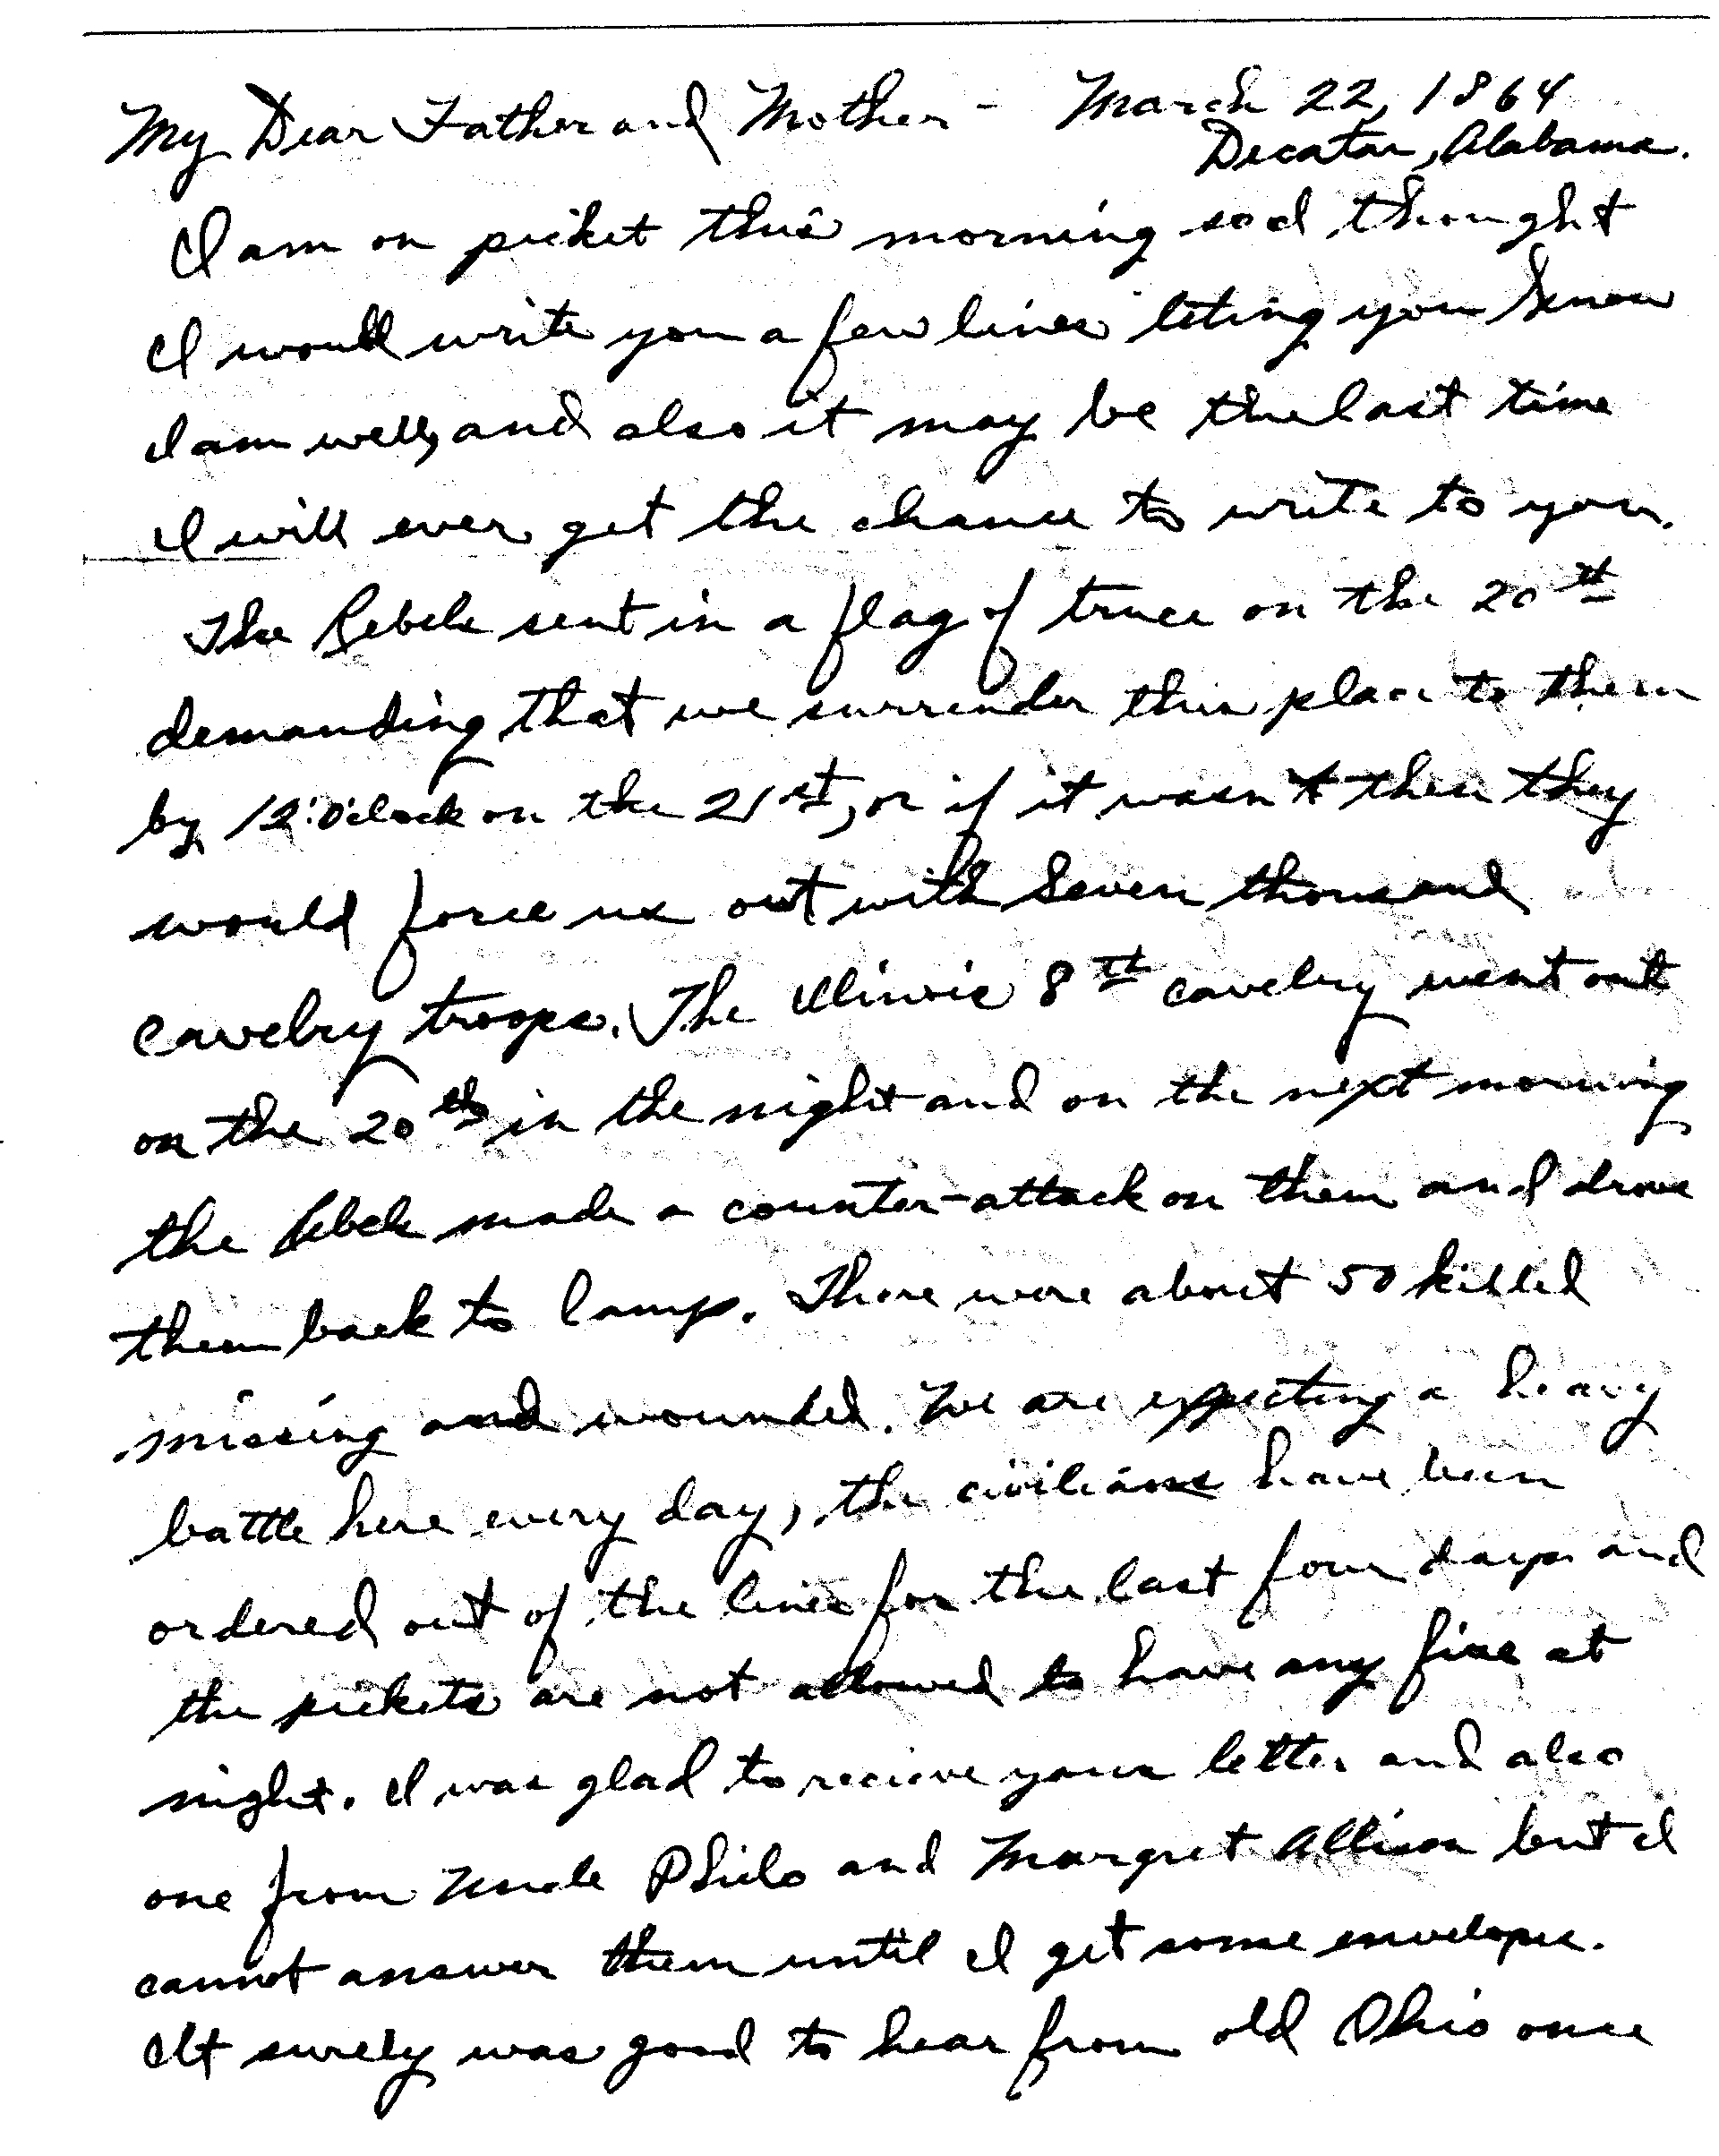 My Dear Father and Mother - March 22, 1864
Decatur, Alabama.
I am on picket this morning so I thought
I would write you a few lines leting you know
I am well, and also it may be the last time
I will ever get the chance to write to you.
The Rebels sent in a flag of truce on the 20th
demanding that we surrender this place to them
by 12:O'clock on the 21st, or if it wasn't then they
would force us out with Seven thousand
cavelry troops. The Illinois 8th cavelry went out
on the 20th in the night and on the next morning
the Rebels made a counter-attack on them and drove
them back to Camp. There were about 50 killed
missing and wounded. We are expecting a heavy
battle here every day, the civilians have been
ordered out of the lines for the last four days and
the pickets are not allowed to have any fire at
night. I was glad to recieve your letter and also
one from Uncle Philo and Margret Allison but I
cannot answer them until I get some envelopes.
It surely was good to hear from old Ohio once